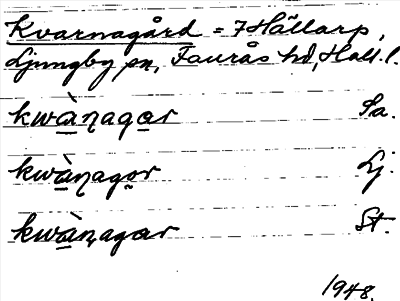 Kvarnagård = 7 Hällarp,
Ljungby sn, Faurås hd, Hall. l.
kwàꞃagar Sa.
kwàꞃagor Lj.
kwàꞃagar St.
1948.